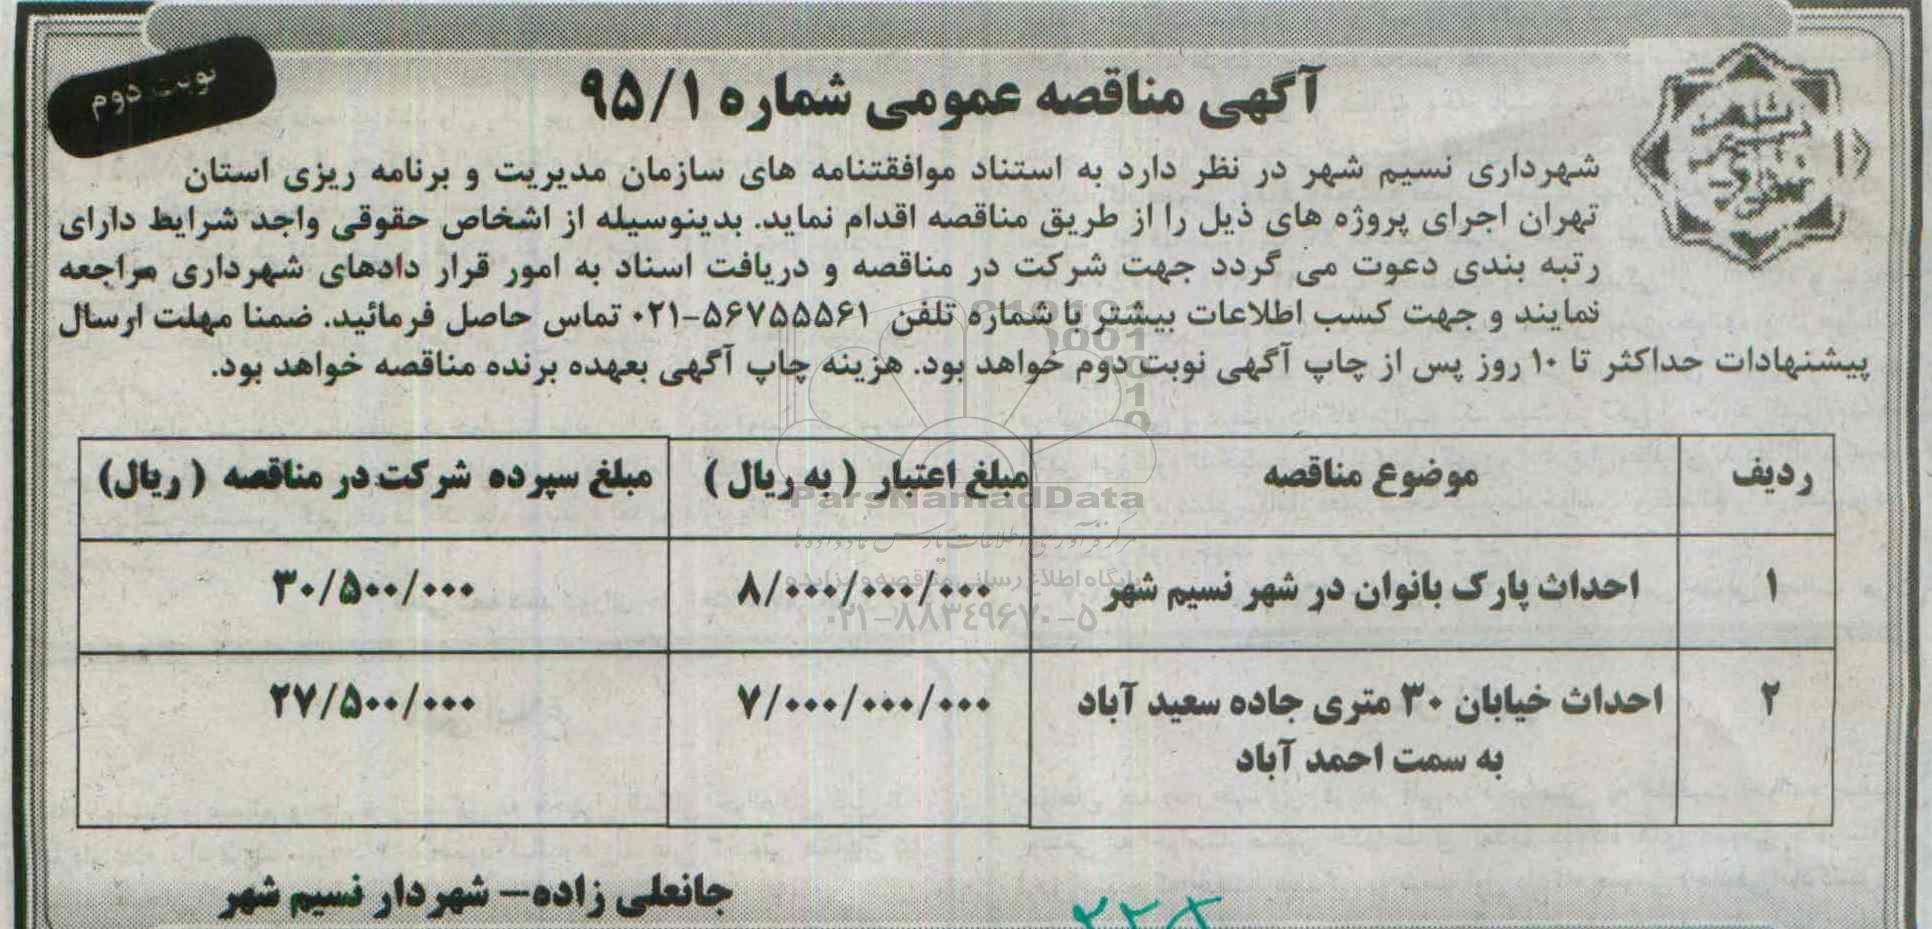 نوبت دوم
آگهی مناقصه عمومی شماره ۹۵/۱
شهرداری نسیم شهر در نظر دارد به استناد موافقتنامه های سازمان مدیریت و برنامه ریزی استان
تهران اجرای پروژه های ذیل را از طریق مناقصه اقدام نماید. بدینوسیله از اشخاص حقوقی واجد شرایط دارای
رتبه بندی دعوت می گردد جهت شرکت در مناقصه و دریافت اسناد به امور قرار دادهای شهرداری مراجعه
نمایند و جهت کسب اطلاعات بیشتر با شماره تلفن ۵۶۷۵۵۵۶۱-۰۲۱ تماس حاصل فرمائید. ضمنا مهلت ارسال
پیشنهادات حداکثر تا ۱۰ روز پس از چاپ آگهی نوبت دوم خواهد بود. هزینه چاپ آگهی بعهده برنده مناقصه خواهد بود.
ردیف موضوع مناقصه مبلغ اعتبار ( به ریال ) مبلغ سپرده شرکت در مناقصه ( ریال)
۱ احداث پارک بانوان در شهر نسیم شهر ۸/۰۰۰/۰۰۰/۰۰۰ ۳۰/۵۰۰/۰۰۰
۲ احداث خیابان ۳۰ متری جاده سعید آباد ۷/۰۰۰/۰۰۰/۰۰۰ ۲۷/۵۰۰/۰۰۰
به سمت احمد آباد
جانعلی زاده- شهردار نسیم شهر
ParsNamadData
مرکز فرآوری اطلاعات پارس نماد داده ها
پایگاه اطلاع رسانی مناقصه و مزایده
۰۲۱-۸۸۳۴۹۶۷۰-۵